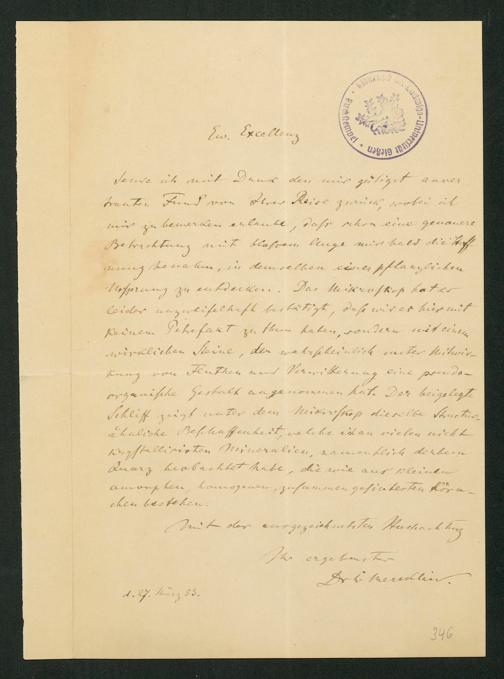 Ew. Excellenz
sende ich mit Dank den mir gütigst anver
trauten Fund von Ihrer Reise zurück, wobei ich
mir zu bemerken erlaube, daß schon eine genauere
Betrachtung mit bloßem Auge mir bald die Hoff
nung benahm, in demselben einen pflanzlichen
Ursprung zu entdecken. Das Mikroskop hat es
leider unzweifelhaft bestätigt, daß wir es hier mit
keinem Petrefakt zu thun haben, sondern mit einem
wirklichen Steine, der wahrscheinlich unter Mitwir-
kung von Fluthen und Verwitterung eine pseudo-
organische Gestalt angenommen hat. Der beigelegte
Schliff zeigt unter dem Mikroskop dieselbe
ähnliche Beschaffenheit, welche ich an vielen nicht
krystallisirten Mineralien, namentlich derbem
Quarz beobachtet habe, die wie aus kleinen
amorphen, homogenen, zusammen gesinterten Körn-
chen bestehen.
Mit der ausgezeichnetsten Hochachtung
Ihr ergebenster
Dr
d. 27. März 53.
346